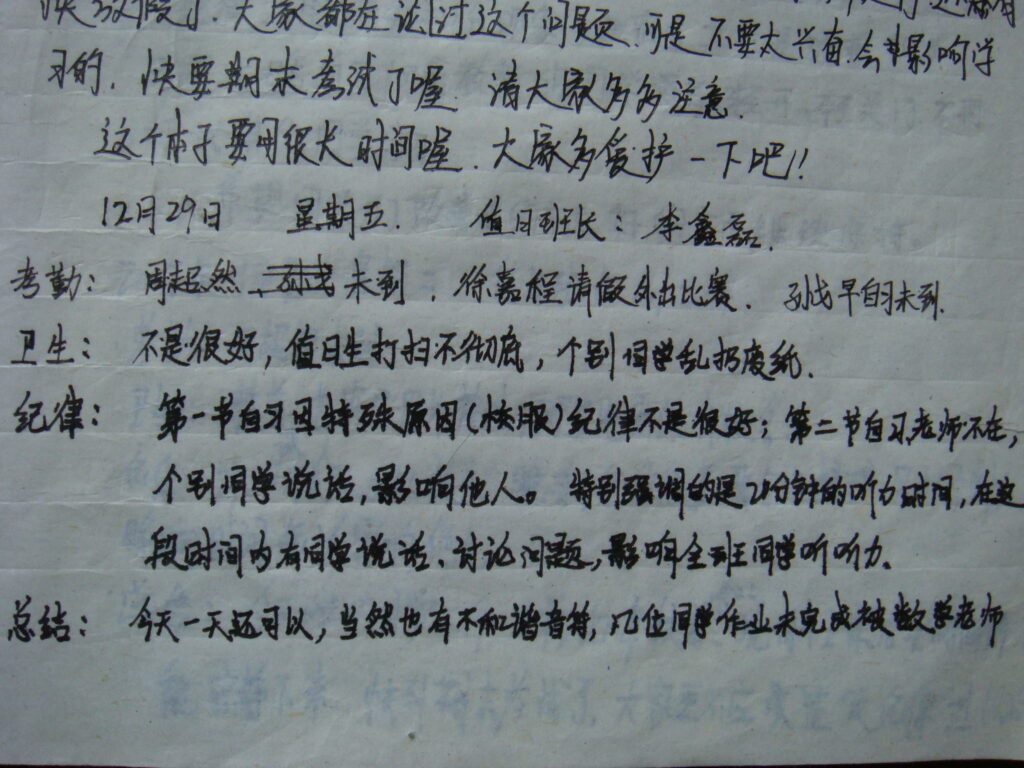 快放假了.大家都在论讨过这个问题.可是不要太兴奋.会影响学
习的.快要期末考试了喔.请大家多多注意.
这个本子要用很长时间喔.大家多爱护一下吧!!
12月29日 星期五. 值日班长:李鑫磊.
考勤:周超然、未到.徐嘉程请假外出比赛.孙戈早自习未到.
卫生:不是很好,值日生打扫不彻底,个别同学乱扔废纸.
纪律:第一节自习因特殊原因(校服)纪律不是很好;第二节自习老师不在,
个别同学说话,影响他人。特别强调的是20分钟的听力时间,在这
段时间内有同学说话、讨论问题,影响全班同学听听力。
总结:今天一天还可以,当然也有不和谐音符,几位同学作业未完成被数学老师